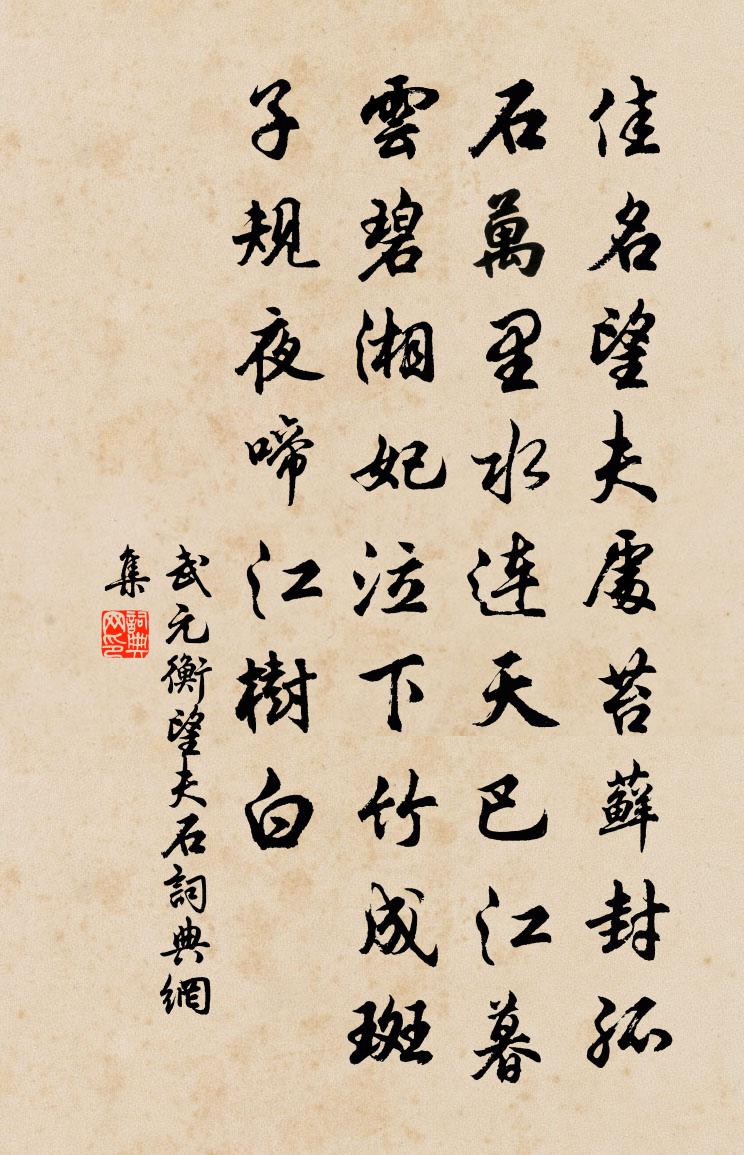 佳名望夫處苔蘚封孤
石萬里水連天巴江暮
雲碧湘妃泣下竹成斑
子規夜啼江樹白
武元衡望夫石詞典網
集
詞典
网印